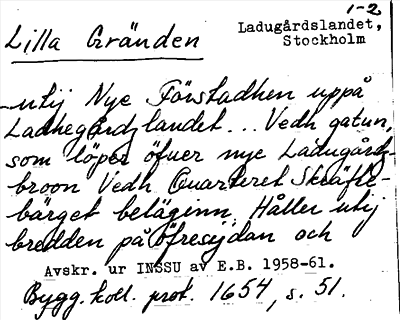 1-2
Lilla Gränden
Ladugårdslandet,
Stockholm
utij Nye Förstadhen uppå
Ladhegårdzlandet... Vedh gatun,
som löper öfuer nye Ladugårdz-
broon Vedh Quarteret Skeäfle-
bärget beläginn. Håller utij
bredden på öfresijdan och
Avskr. ur INSSU av E.B. 1958-61.
Bygg. koll. prot. 1654, s. 51.